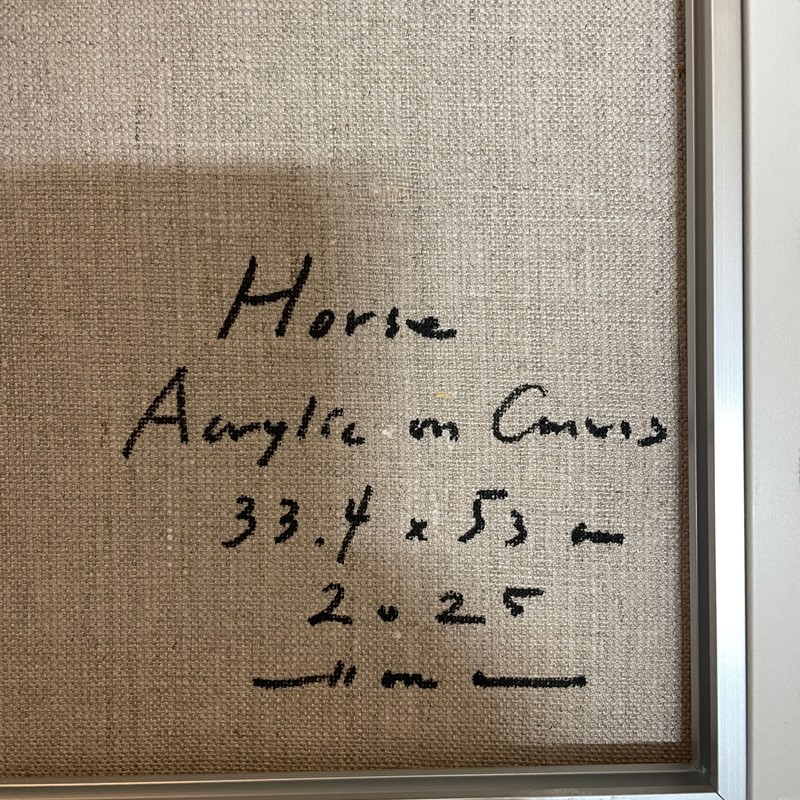 Horse
Acrylic on Canvas
33.4 x 53 cm
2025